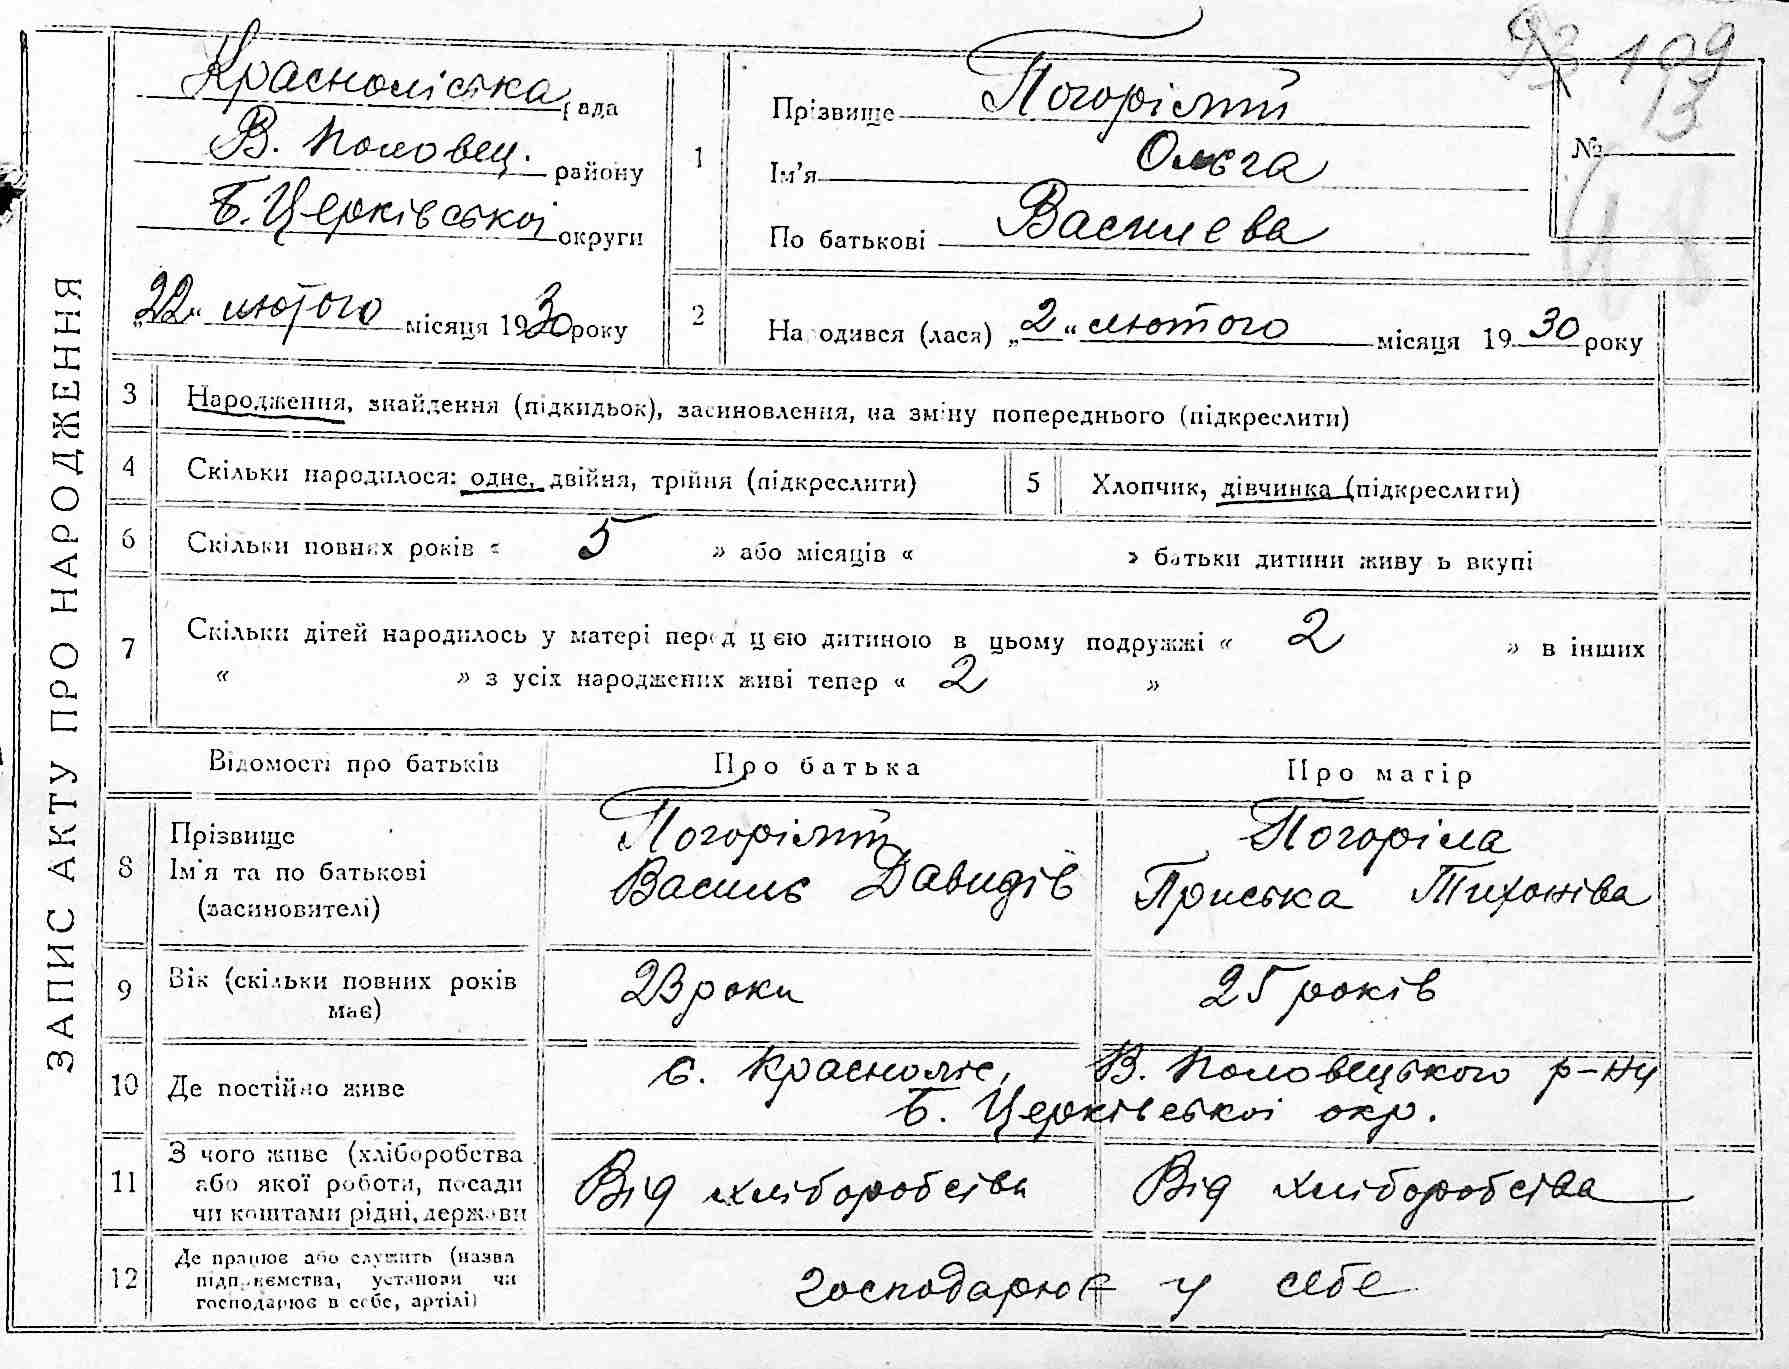 ЗАПИС АКТУ ПРО НАРОДЖЕННЯ
Краснолїська рада
В. Половец. району
Б. Церківської округи
„22“ лютого місяця 1930 року
1
Прізвище Погорілий
Ім'я Ольга
По батькові Василева
93 199
13
№
48
2
Народився (лася) „2“ лютого місяця 1930 року
3
Народження, знайдення (підкидьок), засиновлення, на зміну попереднього (підкреслити)
4
Скільки народилося: одне, двійня, трійня (підкреслити)
5
Хлопчик, дівчинка (підкреслити)
6
Скільки повних років « 5 » або місяців « » батьки дитини живуть вкупі
7
Скільки дітей народилось у матері перед цією дитиною в цьому подружжі « 2 » в інших
« » з усіх народжених живі тепер « 2 »
Відомості про батьків
Про батька
Про матір
8
Прізвище
Ім'я та по батькові
(засиновителі)
Погорілий
Василь Давидів
Погоріла
Приська Тихонова
9
Вік (скільки повних років
має)
23 роки
25 років
10
Де постійно живе
с. Краснолїс, В. Половецького р-ну
Б. Церківської окр.
11
З чого живе (хліборобства
або якої роботи, посади
чи коштами рідні, держави
Від хліборобства
Від хліборобства
12
Де працює або служить (назва
підприємства, установи чи
господарює в себе, артілі)
господарює у себе